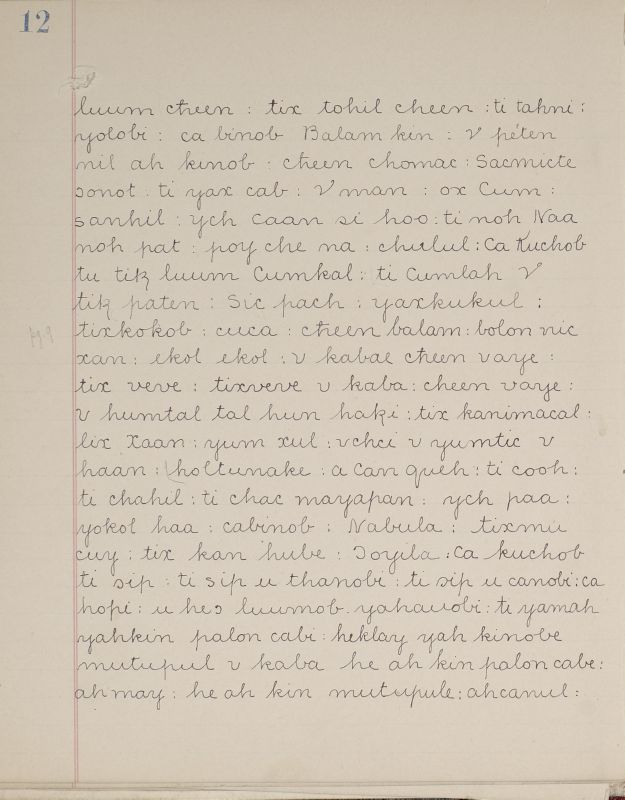 12
luum cħeen : tix tohil cheen : ti tahni :
yolobi : ca binob Balam kin : V péten
nil ah kinob : cħeen chomac : Sacmicte
ɔonot : ti yax cab : V man : ox Cum :
sanhil : ych caan si hoo : ti noh Naa
noh pat : poy che na : chulul : Ca Kuchob
tu tiꝁ luum Cumkal : ti Cumlah V
tiꝁ paten : Sic pach : yaxkukul :
tixkokob : cuca : cħeen balam : bolon nic
xan : ekol ekol : v kabae cħeen vaye :
tix veve : tixveve v kaba : cheen vaye :
v humtal tal hun haꝁi : tix kanimacal :
lix Xaan : yum xul : vchci v yumtic v
haan : holtunake : a Can queh : ti cooh :
ti chahil : ti chac mayapan : ych paa :
yokol haa : cabinob : Nabula : tixmu
cuy : tix kan hube : Ɔoyila : Ca kuchob
ti sip : ti sip u thanobi : ti sip u canobi : ca
hopi : u heɔ luumob . yahauobi : ti yamah
yahkin palon cabi : heklay yah kinobe
mutupul v kaba he ah kin palon cabe :
ah may : he ah kin mutupule : ahcanul :